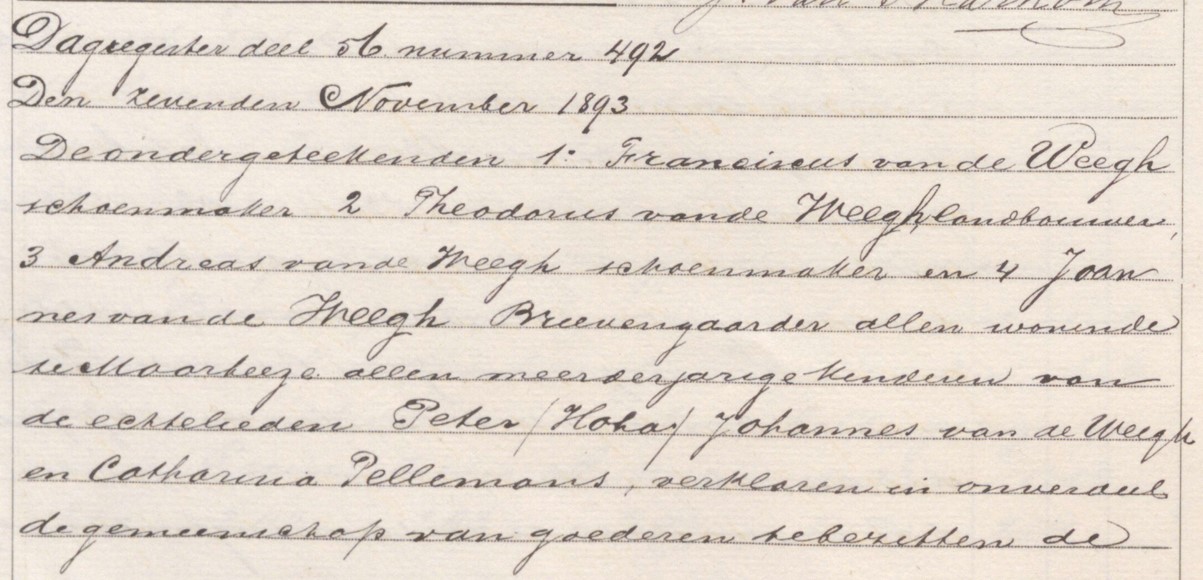 J. van
Dagregister deel 56 nummer 492
Den zevenden November 1893
De ondergeteekenden 1° Franciscus van de Weegh
schoenmaker 2 Theodorus vande Weegh, landbouwer,
3 Andreas vande Weegh schoenmaker en 4 Joan
nes van de Weegh Brievengaarder allen wonende
te Maarheeze allen meerderjarige kinderen van
de echtelieden Peter (Hoha) Johannes van de Weegh
en Catharina Pellemans, verklaren in onverdeel
de gemeenschap van goederen te bezitten de